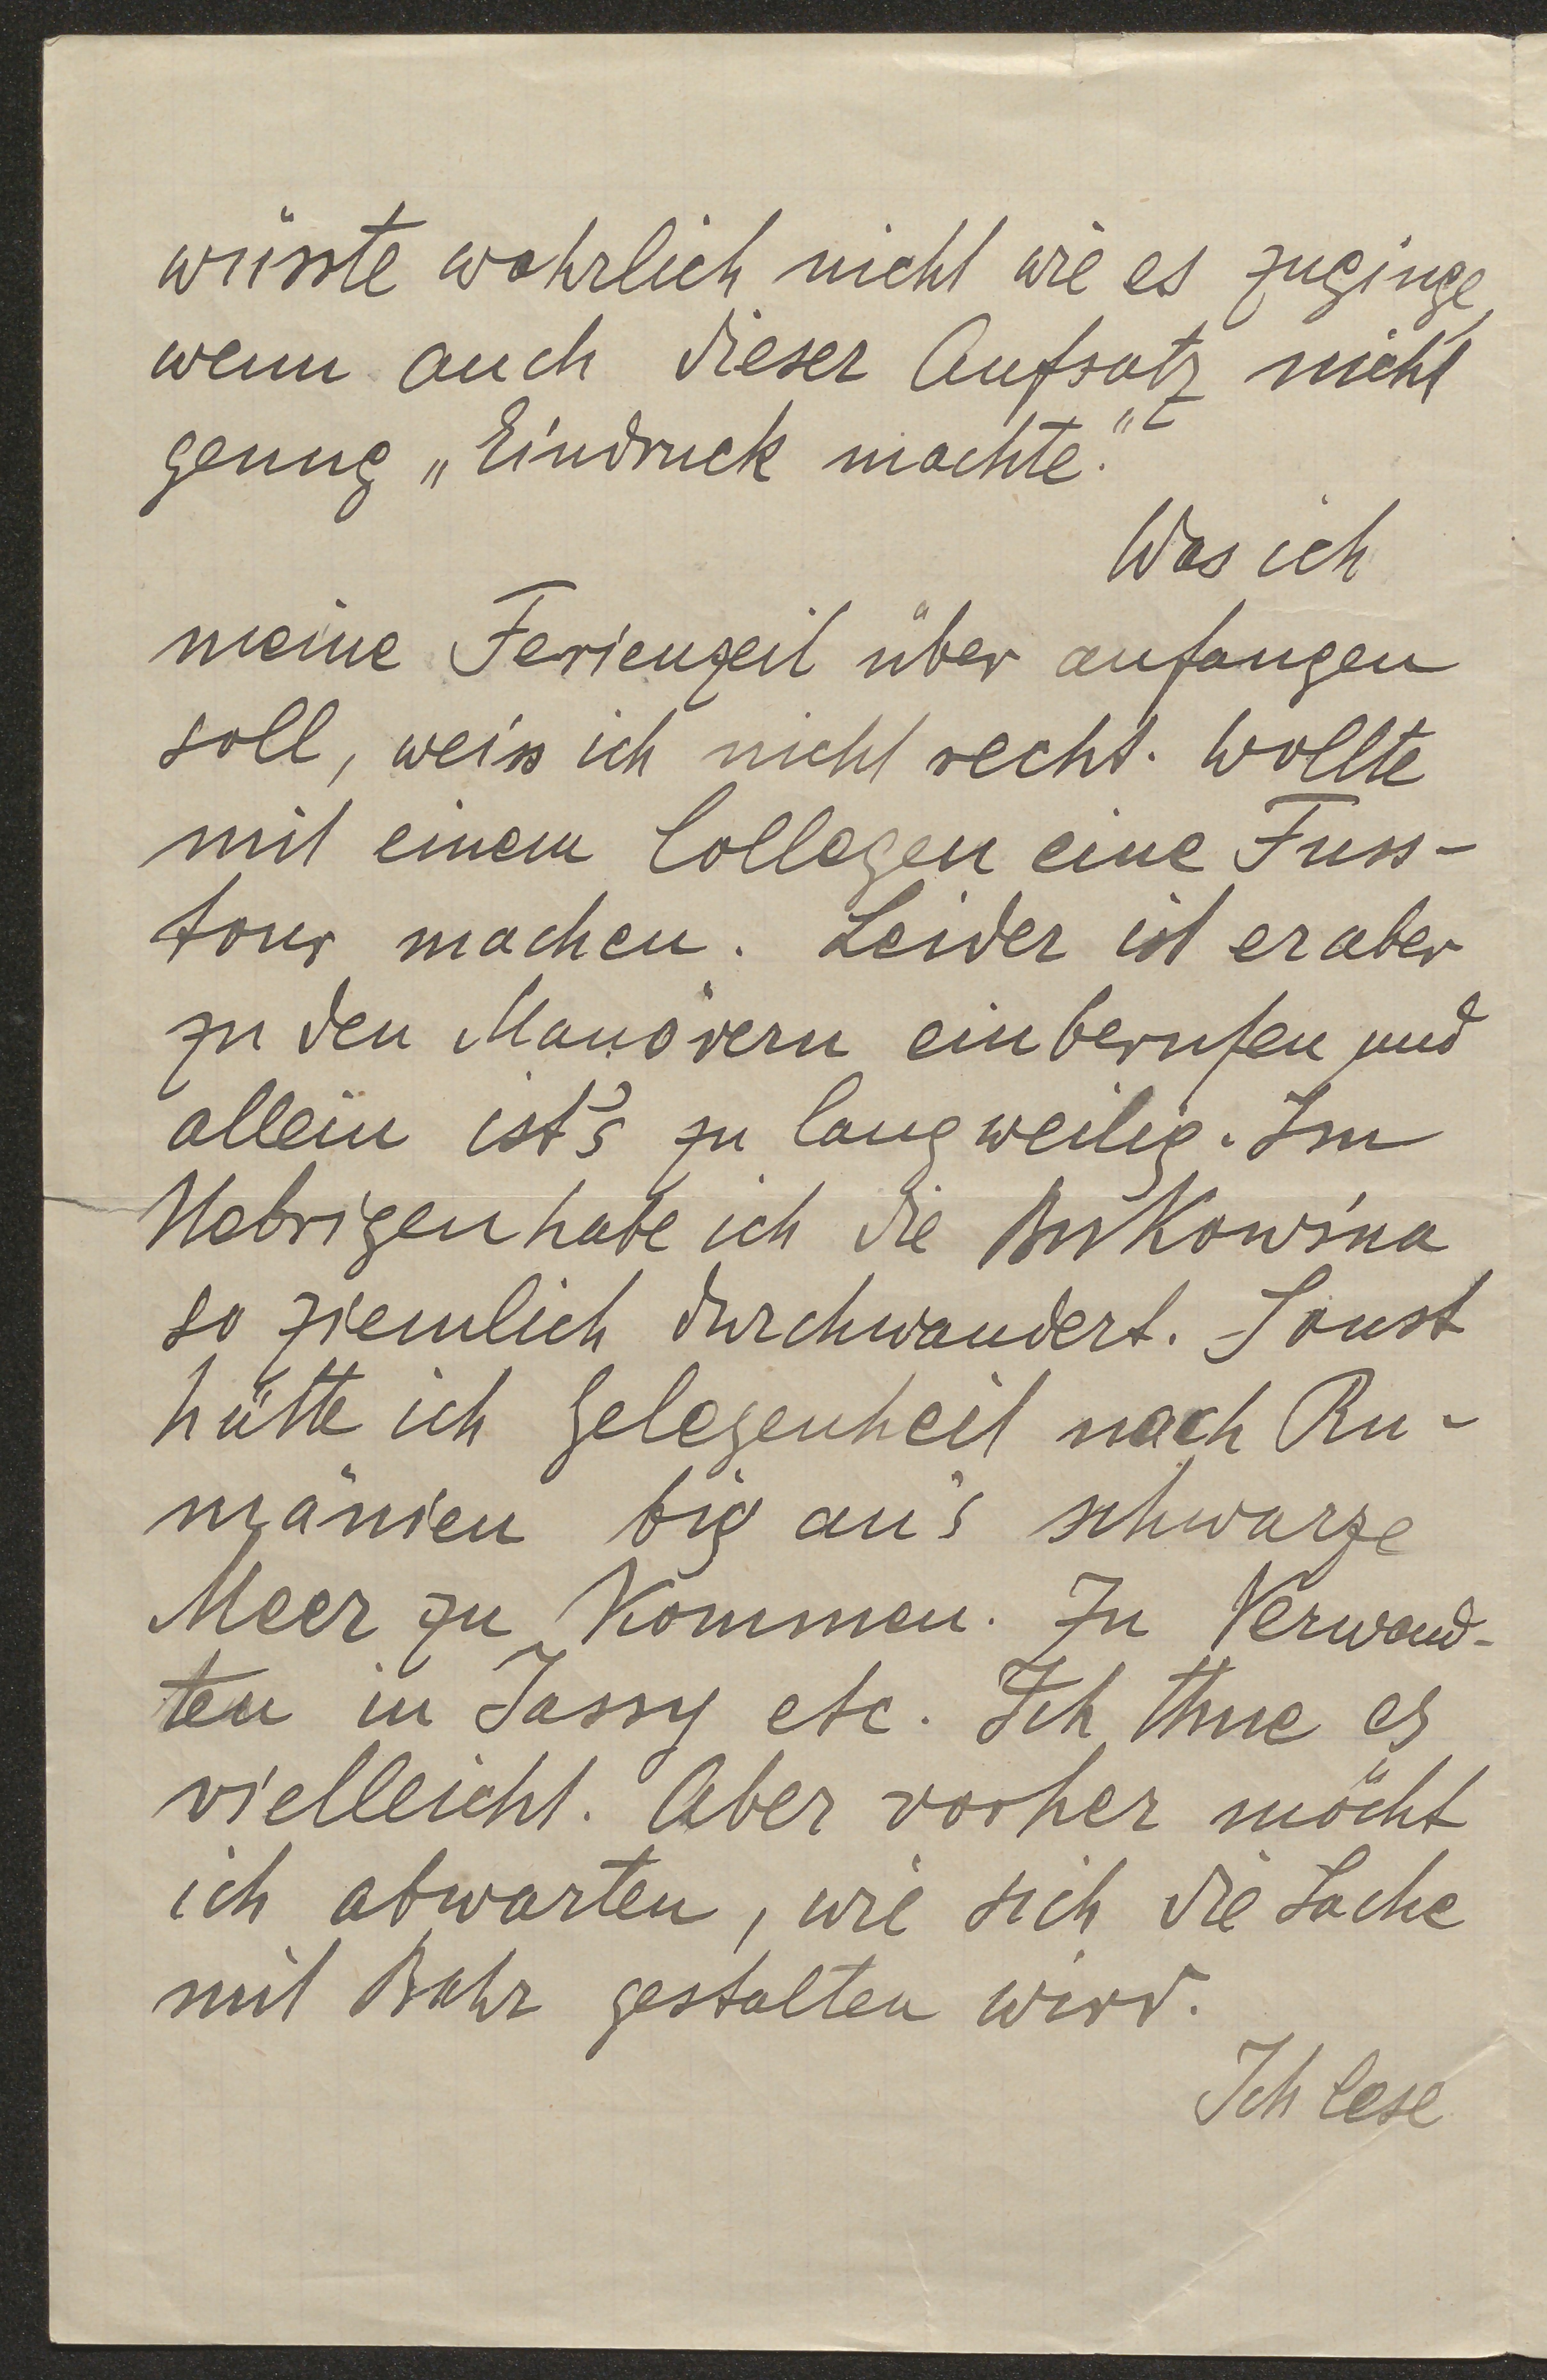 wüsste wahrlich nicht wie es zuginge,
wenn auch dieser Aufsatz nicht
genug „Eindruck machte."
Was ich
meine Ferienzeit über anfangen
soll, weiss ich nicht recht. Wollte
mit einem Collegen eine Fuss-
tour machen. Leider ist er aber
zu den Manövern einberufen und
allein ist's zu langweilig. Im
Uebrigen habe ich die Bukowina
so ziemlich durchwandert. Sonst
hätte ich Gelegenheit nach Ru-
mänien bis an's schwarze
Meer zu kommen. Zu Verwand-
ten in Jassy etc. Ich thue es
vielleicht. Aber vorher möcht
ich abwarten, wie sich die Sache
mit Bahr gestalten wird.
Ich lese